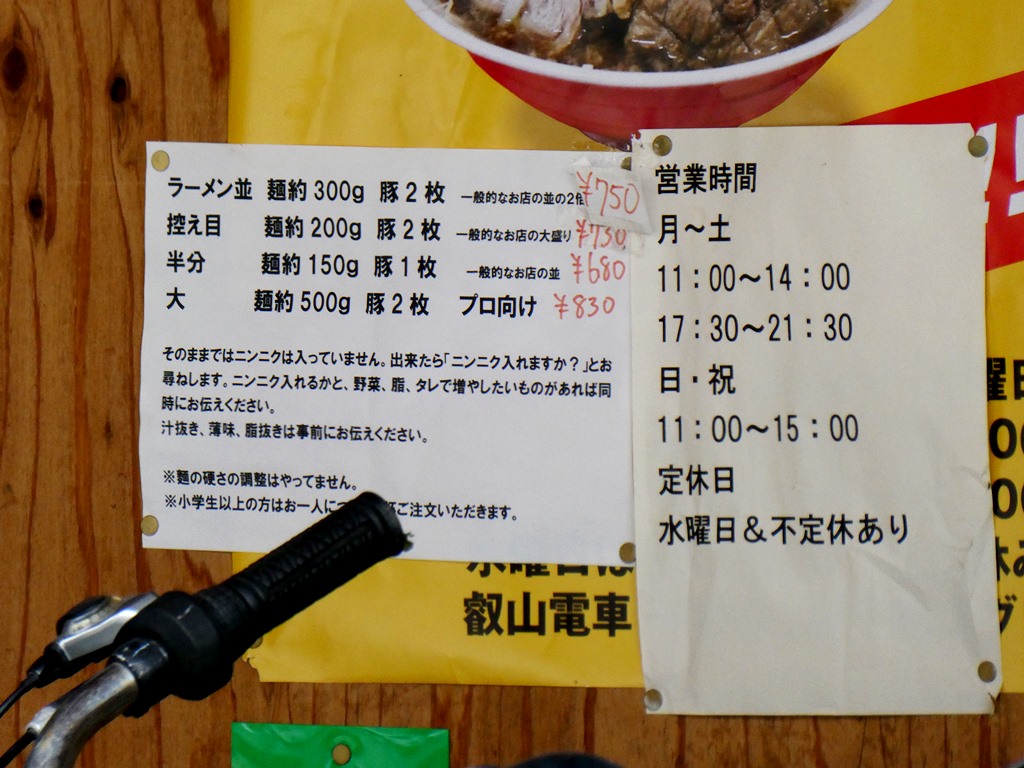 ラーメン並 麺約300g 豚2枚 一般的なお店の並の2倍 ¥750
控え目 麺約200g 豚2枚 一般的なお店の大盛り ¥730
半分 麺約150g 豚1枚 一般的なお店の並 ¥680
大 麺約500g 豚2枚 プロ向け ¥830
そのままではニンニクは入っていません。出来たら「ニンニク入れますか？」とお
尋ねします。ニンニク入れるかと、野菜、脂、タレで増やしたいものがあれば同
時にお伝えください。
汁抜き、薄味、脂抜きは事前にお伝えください。
※麺の硬さの調整はやってません。
※小学生以上の方はお一人に ご注文いただきます。
営業時間
月～土
11：00～14：00
17：30～21：30
日・祝
11：00～15：00
定休日
水曜日＆不定休あり
水曜日は
叡山電車
曜日